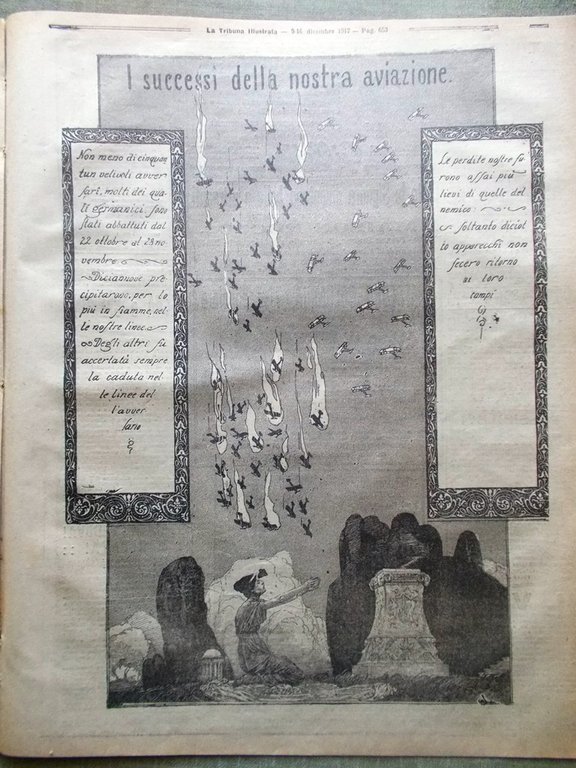 La Tribuna Illustrata — 9-16 dicembre 1917 — Pag. 653
I successi della nostra aviazione.
Non meno di cinquan
tun velivoli avver
sari, molti dei qua
li germanici, sono
stati abbattuti dal
22 ottobre al 28 no
vembre.
Diciannove pre
cipitarono, per lo
più in fiamme, nel
le nostre linee.
Degli altri fu
accertata sempre
la caduta nel
le linee del
l'avver
sario
Le perdite nostre fu
rono assai più
lievi di quelle del
nemico
soltanto diciot
to apparecchi non
fecero ritorno
ai loro
campi